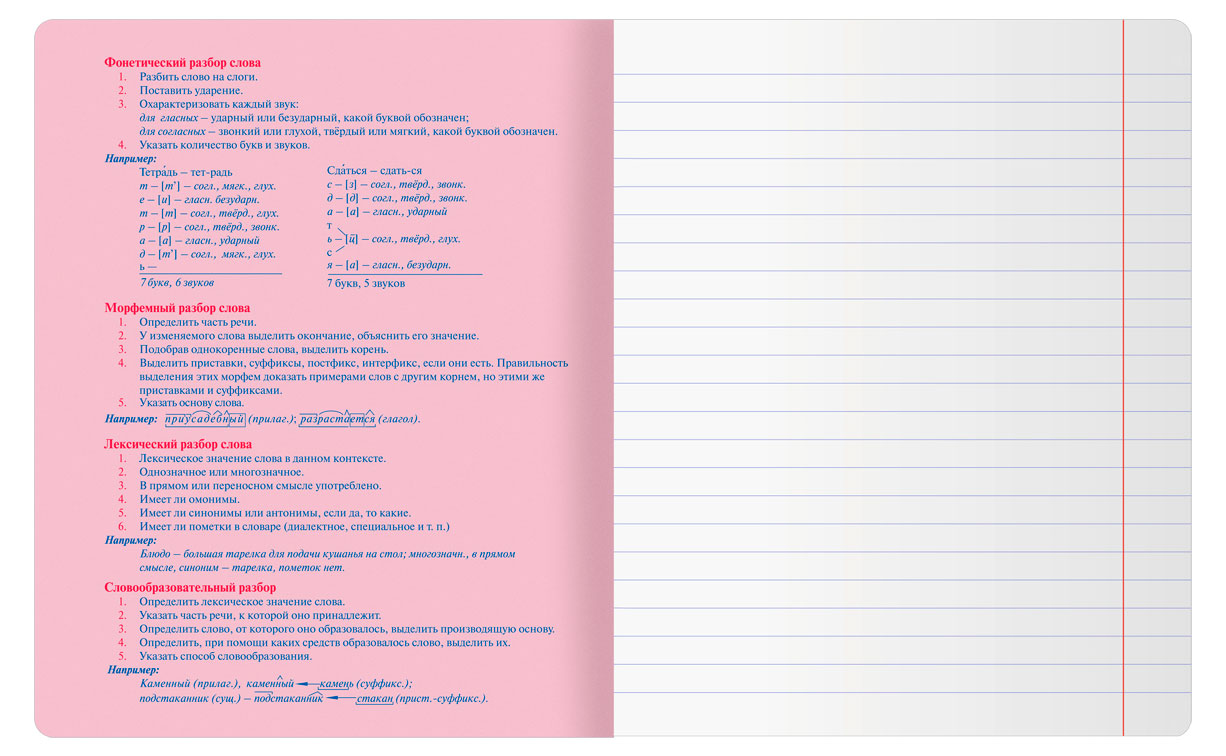 Фонетический разбор слова
1. Разбить слово на слоги.
2. Поставить ударение.
3. Охарактеризовать каждый звук:
для гласных – ударный или безударный, какой буквой обозначен;
для согласных – звонкий или глухой, твёрдый или мягкий, какой буквой обозначен.
4. Указать количество букв и звуков.
Например:
Тетра́дь – тет-радь
т – [т’] – согл., мягк., глух.
е – [и] – гласн. безударн.
т – [т] – согл., твёрд., глух.
р – [р] – согл., твёрд., звонк.
а – [а] – гласн., ударный
д – [т’] – согл., мягк., глух.
ь —
7 букв, 6 звуков
Сда́ться – сдать-ся
с – [з] – согл., твёрд., звонк.
д – [д] – согл., твёрд., звонк.
а – [а] – гласн., ударный
т
ь – [ц̄] – согл., твёрд., глух.
с
я – [а] – гласн., безударн.
7 букв, 5 звуков
Морфемный разбор слова
1. Определить часть речи.
2. У изменяемого слова выделить окончание, объяснить его значение.
3. Подобрав однокоренные слова, выделить корень.
4. Выделить приставки, суффиксы, постфикс, интерфикс, если они есть. Правильность
выделения этих морфем доказать примерами слов с другим корнем, но этими же
приставками и суффиксами.
5. Указать основу слова.
Например: приусадебный (прилаг.); разрастается (глагол).
Лексический разбор слова
1. Лексическое значение слова в данном контексте.
2. Однозначное или многозначное.
3. В прямом или переносном смысле употреблено.
4. Имеет ли омонимы.
5. Имеет ли синонимы или антонимы, если да, то какие.
6. Имеет ли пометки в словаре (диалектное, специальное и т. п.)
Например:
Блюдо – большая тарелка для подачи кушанья на стол; многозначн., в прямом
смысле, синоним – тарелка, пометок нет.
Словообразовательный разбор
1. Определить лексическое значение слова.
2. Указать часть речи, к которой оно принадлежит.
3. Определить слово, от которого оно образовалось, выделить производящую основу.
4. Определить, при помощи каких средств образовалось слово, выделить их.
5. Указать способ словообразования.
Например:
Каменный (прилаг.), каменный ← камень (суффикс.);
подстаканник (сущ.) – подстаканник ← стакан (прист.-суффикс.).